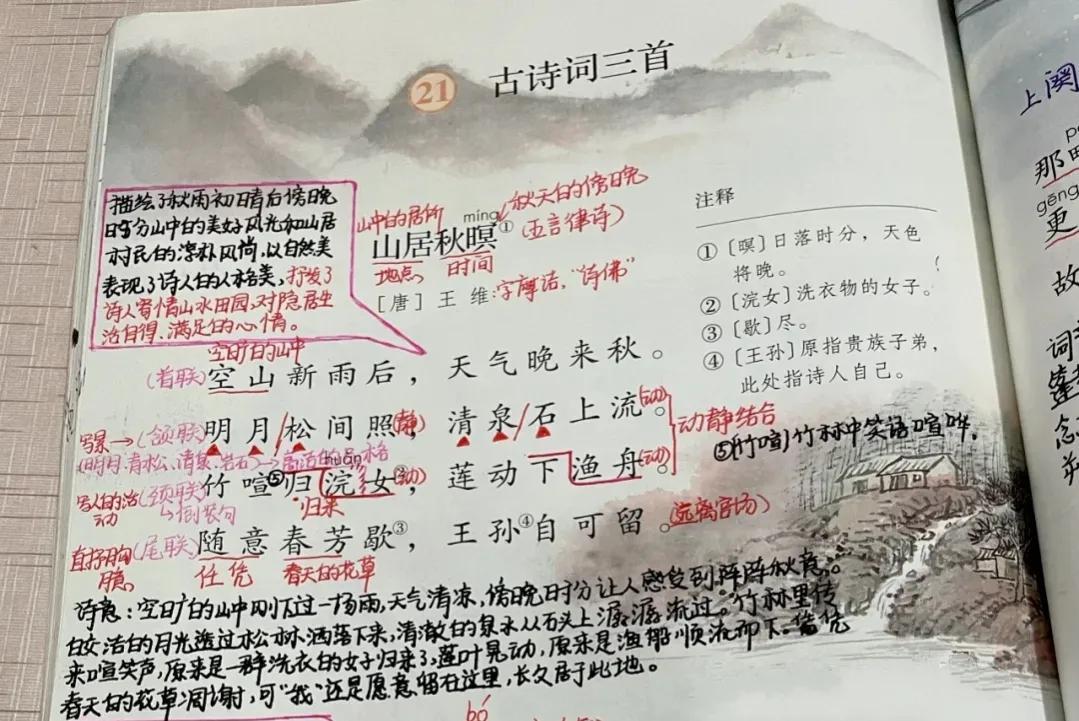 21 古诗词三首
描绘了秋雨初晴后傍晚
时分山中的美好风光和山居
村民的淳朴风尚,以自然美
表现了诗人的人格美,抒发了
诗人寄情山水田园,对隐居生
活自得、满足的心情。
山中的居所
秋天的傍晚
míng
(五言律诗)
山居秋暝①
地点
时间
[唐] 王 维:字摩诘,“诗佛”
空旷的山中
(首联)空山新雨后,天气晚来秋。
写景→(颔联)明月/松间照(静),清泉/石上流(动)。
动静结合
(明月.青松.清泉.岩石)→高洁的品格
huǎn
写人的活动
(颈联)竹喧⑤归浣女②(动),莲动下渔舟(动)。
→倒装句
归来
直抒胸臆
(尾联)随意春芳歇③,王孙④自可留。(远离官场)
任凭
春天的花草
诗意:空旷的山中刚下过一场雨,天气清凉,傍晚时分让人感受到阵阵秋意。
皎洁的月光透过松林洒落下来,清澈的泉水从石头上潺潺流过。竹林里传
来喧笑声,原来是一群洗衣的女子归来了,莲叶晃动,原来是渔船顺流而下。任凭
春天的花草凋谢,可“我”还是愿意留在这里,长久居于此地。
bó
注释
①〔暝〕日落时分,天色
将晚。
②〔浣女〕洗衣物的女子。
③〔歇〕尽。
④〔王孙〕原指贵族子弟,
此处指诗人自己。
⑤(竹喧)竹林中笑语喧哗.
上阕
那
gēng
更
故
词
念